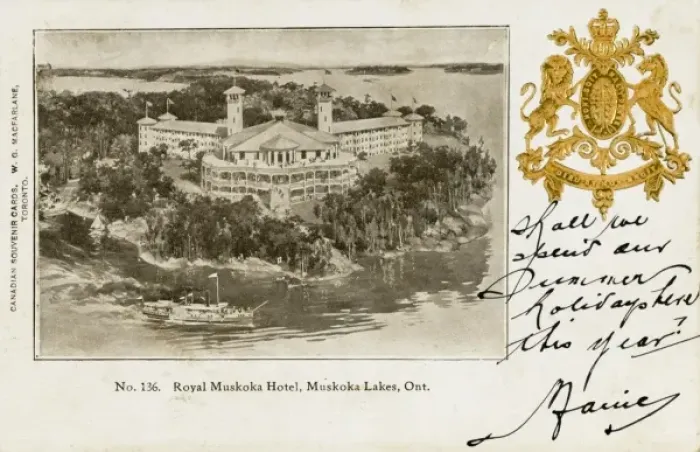 CANADIAN SOUVENIR CARDS, W. G. MACFARLANE,
TORONTO.
No. 136. Royal Muskoka Hotel, Muskoka Lakes, Ont.
Shall we
spend our
Summer
holidays here
this year?